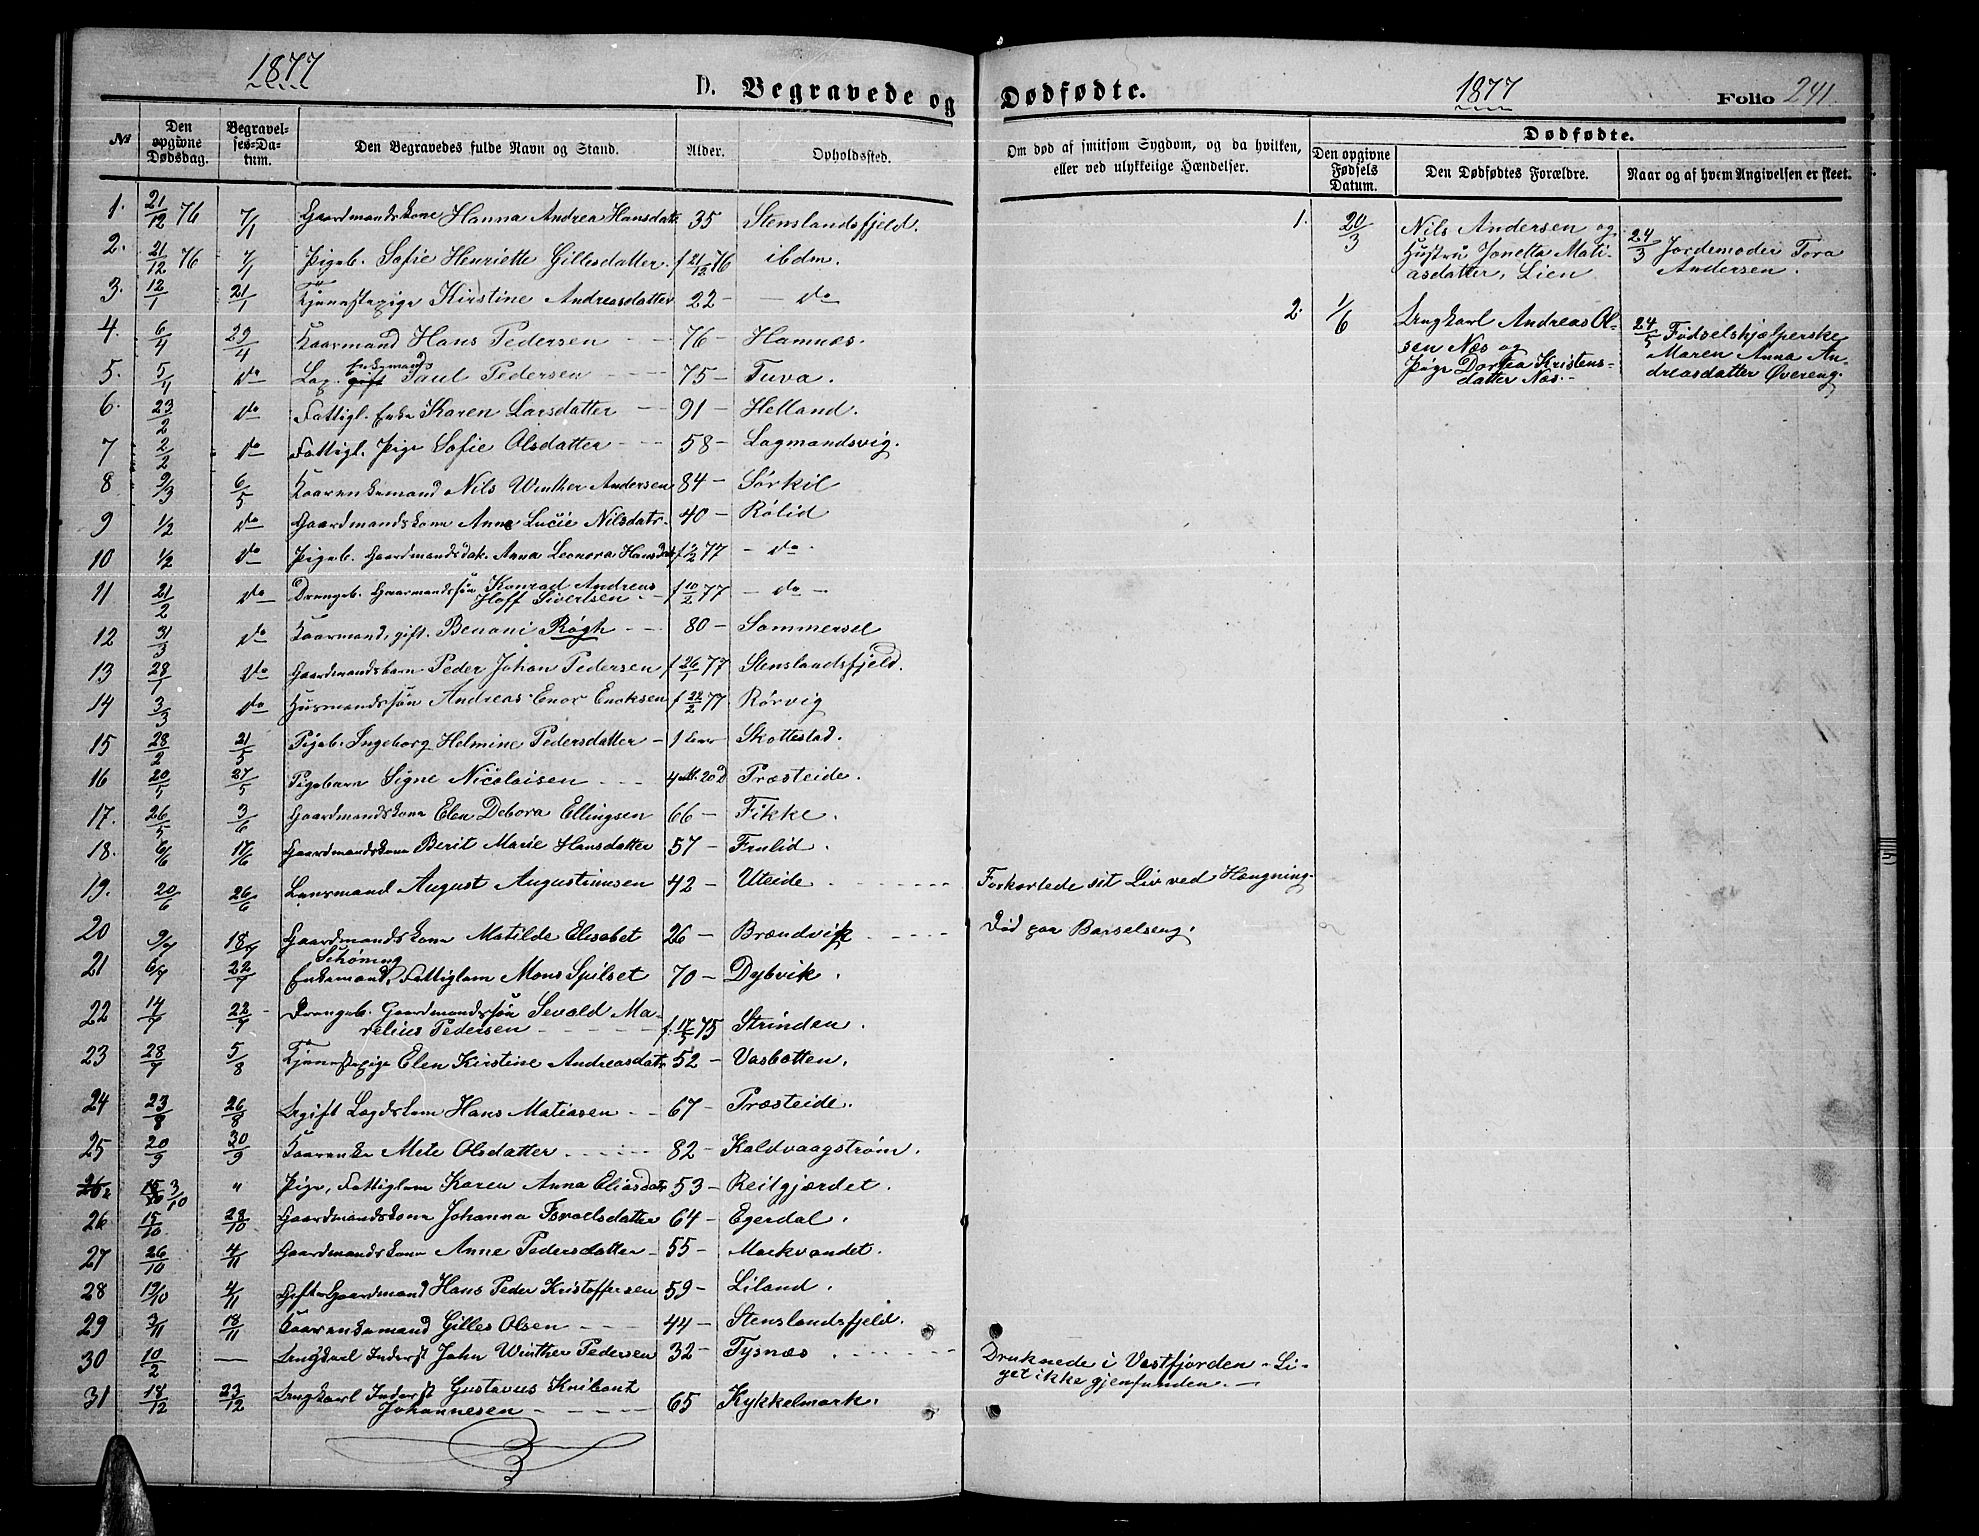 1877
D. Begravede og
Dødfødte.
1877
Folio 241.
№
Den opgivne Dødsdag.
Begravelses-Datum.
Den Begravedes fulde Navn og Stand.
Alder.
Opholdssted.
Om død af smitsom Sygdom, og da hvilken, eller ved ulykkelige Hændelser.
Dødfødte.
Den opgivne Fødsels Datum.
Den Dødfødtes Forældre.
Naar og af hvem Angivelsen er skeet.
1. 21/12 76 7/1 Gaardmandskone Hanna Andrea Hansdatt. 35 Stenslandsfjeld.
2. 21/12 76 7/1 Pigeb. Sofie Henriette Gillesdatter. f 21/12 76 ibdm.
3. 12/1 21/1 Tjenestepige Kirstine Andreasdatter 22 – – do
4. 6/4 29/4 Kaarmand Hans Pedersen – – 76 – Hamnæs.
5. 5/4 do Lax. gift Enkemand Paul Pedersen – – 75 – Tuva.
6. 23/2 do Fattigl. Enke Karen Larsdatter – – 91 – Helland.
7 2/2 do Fattigl. Pige Sofie Olsdatter – – 58 – Lagmandsvig.
8 9/3 6/5 Kaarenkemand Nils Winther Andersen 84 – Sørkil
9 1/2 do Gaardmandskone Anne Lucie Nilsdatr. 40 – Rølid
10 1/2 do Pigeb. Gaardmandsdat. Anna Leonora Hansdat f 1/2 77 – do –
11 21/2 do Drengeb. Gaarmandssøn Konrad Andreas
Hoff Sivertsen – f 10/2 77 – do –
12 31/3 do Kaarmand, gift. Benoni Røgh – – 80 – Sommersel
13 28/1 do Gaardmandsbarn Peder Johan Pedersen f 26/1 77 Stenslandsfjeld.
14 3/3 do Husmandssøn Andreas Enox Enoksen f 22/2 77 Rørvig
15 28/2 21/5 Pigeb. Ingeborg Helmine Pedersdatter – 1 Skottestad.
16 20/5 27/5 Pigebarn Signe Nicolaisen – – 4 M. 20 D Præsteide.
17. 26/5 3/6 Gaardmandskone Elen Debora Ellingsen 66 – Fikke.
18. 6/6 17/6 Gaardmandskone Berit Marie Hansdatter 57 – Finlid.
19. 20/6 26/6 Lensmand August Augustinusen 42 – Uteide – – – Forkortede sit Liv ved Hængning.
20 9/7 18/7 Gaardmandskone Matilde Elisabet
Schøning 26 – Brændvik – – – Død paa Barselseng.
21 6/7 22/7 Enkemand, Fattiglem Mons Spilset 70 – Dybvik.
22 14/7 22/7 Drengeb. Gaardmandssøn Sevald Ma-
relius Pedersen – – – f. 75 Strinden.
23 28/7 5/8 Tjenestepige Elen Kirstine Andreasdatr 52 – Vasbotten.
24 23/8 26/8 Ugift Lægdslem Hans Matiasen – – 67 – Præsteide.
25 20/9 30/9 Kaarenke Mete Olsdatter – – – 82 – Kaldvaagstrøm.
3/10 " Pige, Fattiglem Karen Anna Eliasdatr 53 – Reitgjærdet.
26 15/10 28/10 Gaardmandskone Johanna Israelsdatter 64 – Egerdal.
27 26/10 4/11 Gaardmandskone Anne Pedersdatter – 55 – Markvandet.
28 19/10 4/11 Gift Gaardmand Hans Peder Kristoffersen 59 – Liland.
29 3/11 18/11 Kaarenkemand Gilles Olsen – – 44 – Stenslandsfjeld.
30 10/2 — Ungkarl Inderst John Winther Pedersen 32 – Tysnæs. – – – Druknede i Vestfjorden – Li-
get ikke gjenfunden. –
31 18/12 23/12 Ungkarl Inderst Gustavus Knibont
Johannesen – – – 65 Kykkelmark.
1. 20/3 Nils Andersen og
Hustru Jonetta Mati-
asdatter, Lien
24/3 Jordemoder Tora
Andersen.
2. 1/6 Ungkarl Andreas Ol-
sen Næs og
Pige Dortea Kristens-
datter Næs. –
24/5 Fødselshjælperske
Maren Anna An-
dreasdatter Øvereng.